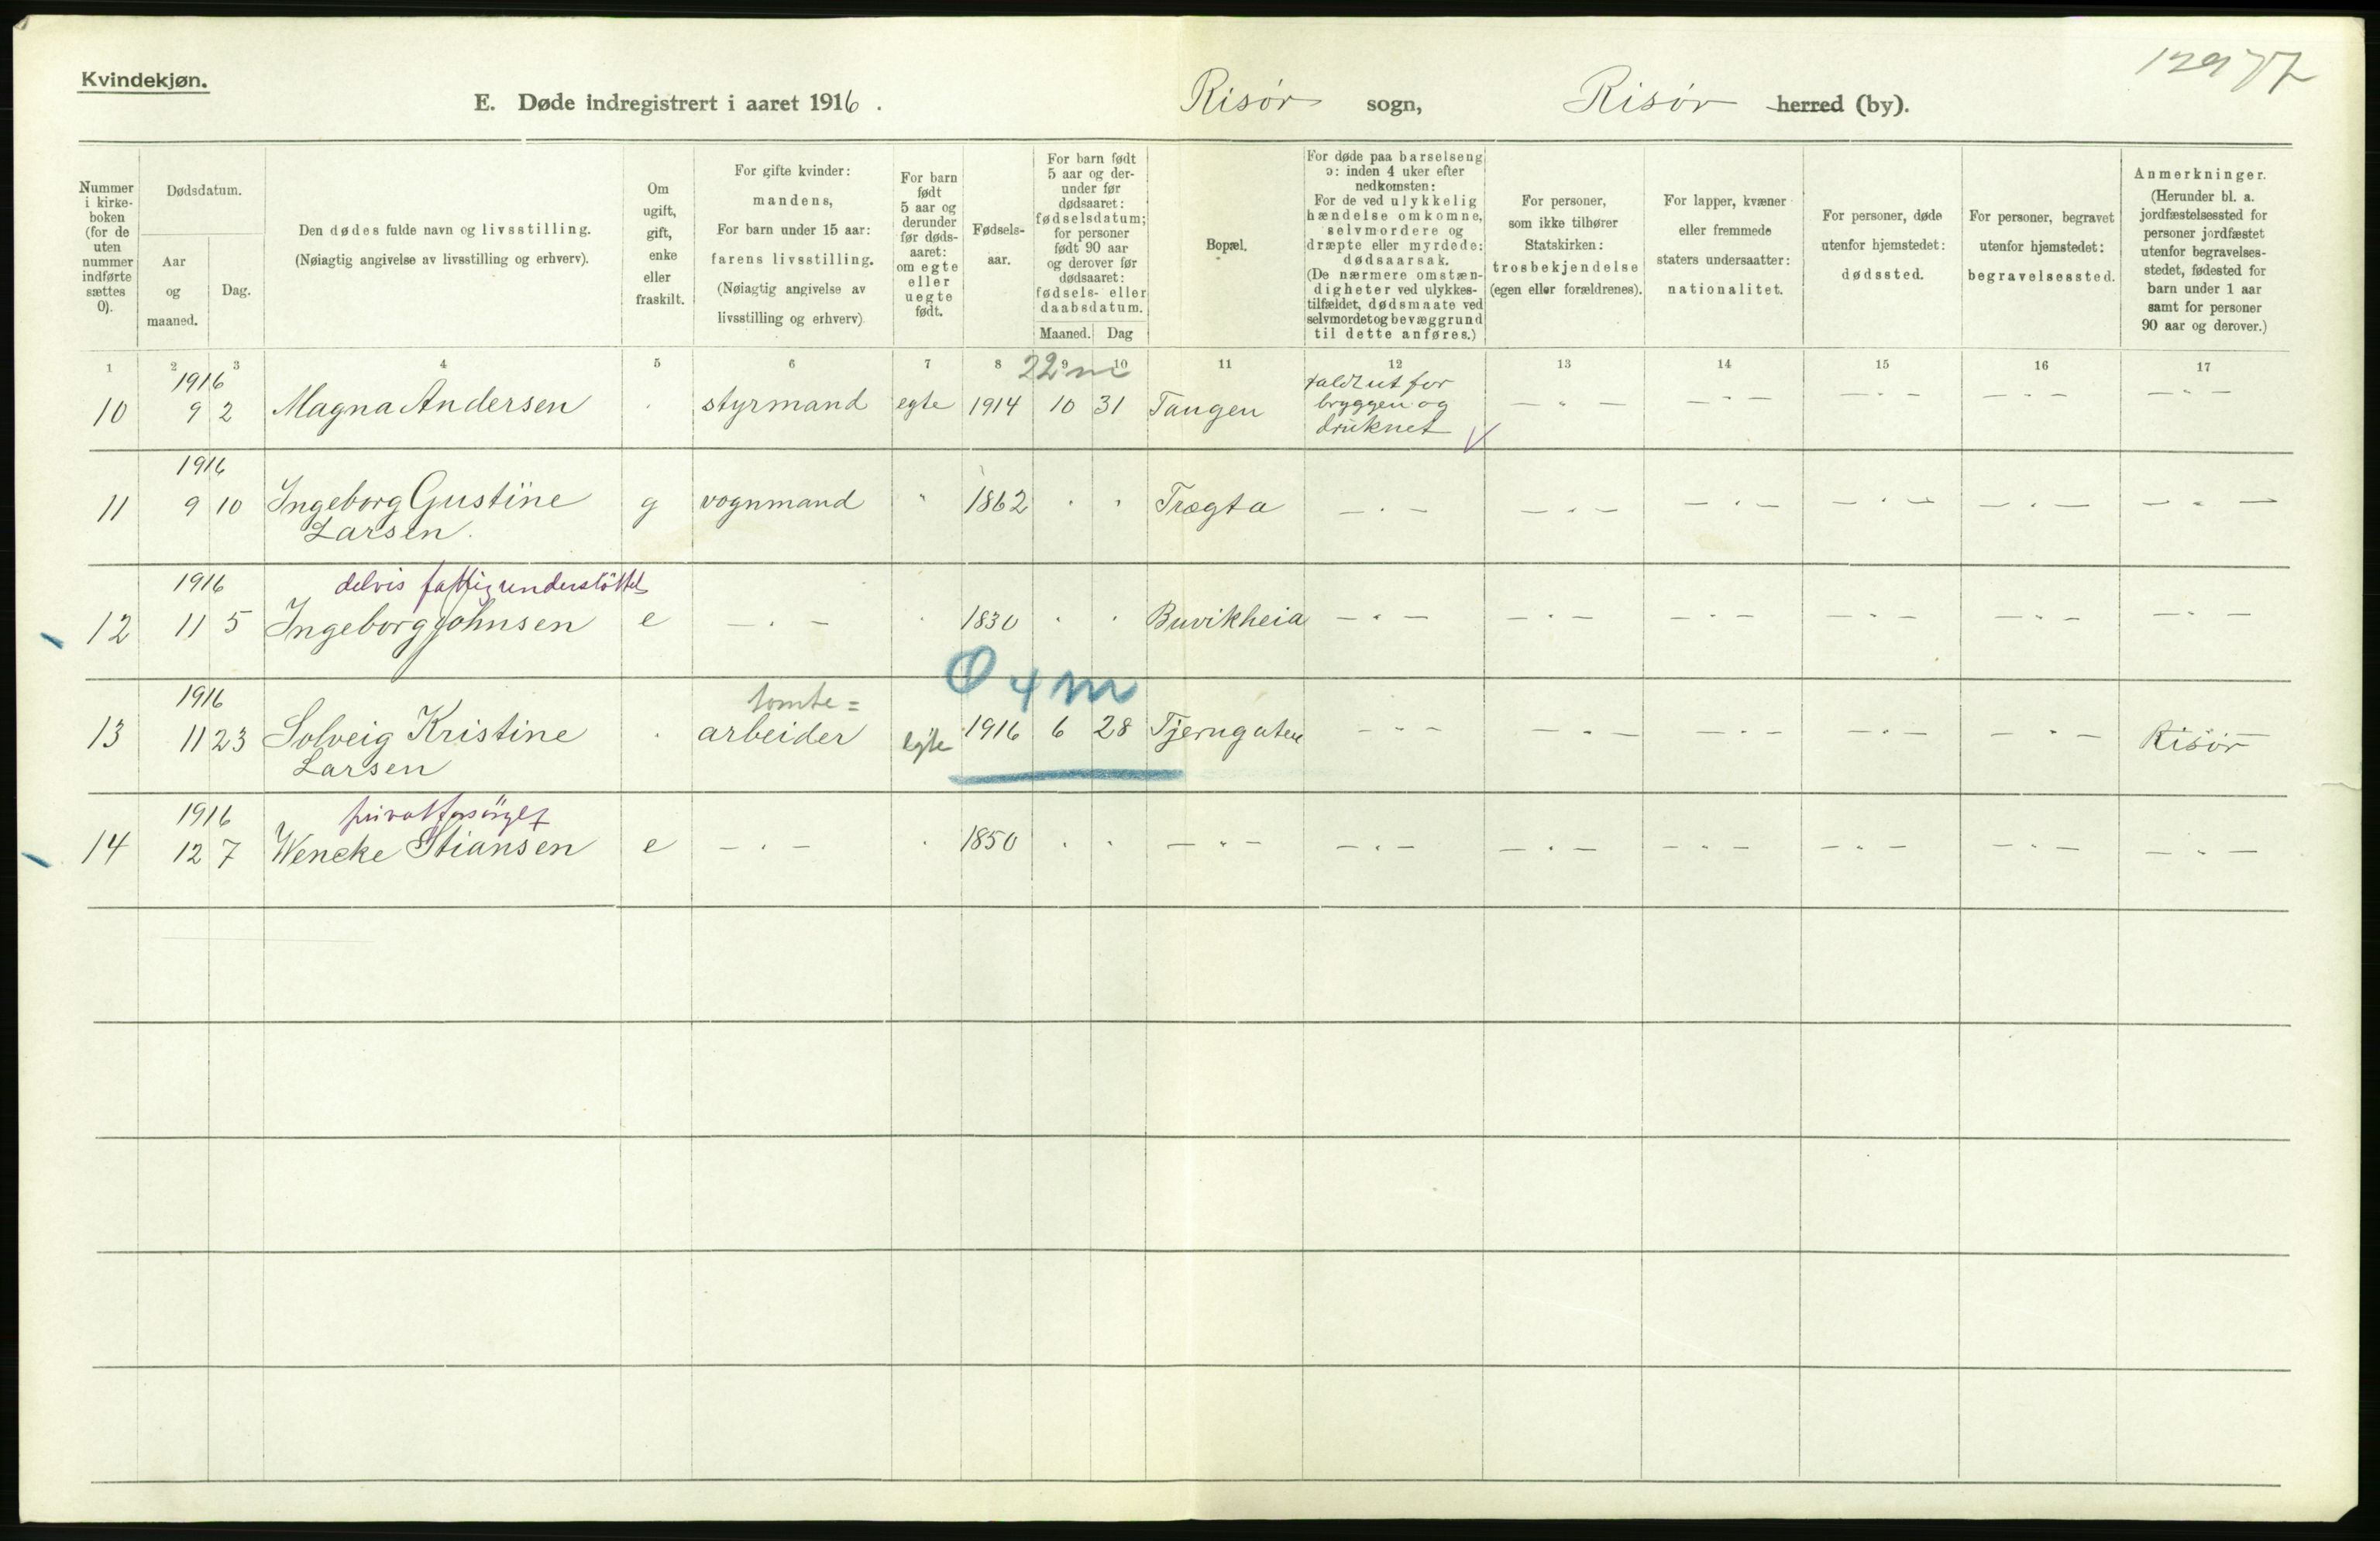 Kvindekjøn.
12977
E. Døde indregistrert i aaret 1916. Risør sogn, Risör herred (by).
Nummer i kirke-boken (for de uten nummer indførte sættes 0).
Dødsdatum.
Aar og maaned.
Dag.
Den dødes fulde navn og livsstilling.
(Nøiagtig angivelse av livsstilling og erhverv).
Om ugift, gift, enke eller fraskilt.
For gifte kvinder:
mandens,
For barn under 15 aar:
farens livsstilling.
(Nøiagtig angivelse av
livsstilling og erhverv)
For barn født 5 aar og derunder før døds-aaret: om egte eller uegte født.
Fødsels-aar.
For barn født 5 aar og der-under før dødsaaret: fødselsdatum; for personer født 90 aar og derover før dødsaaret: fødsels- eller daabsdatum.
Maaned. Dag
Bopæl.
For døde paa barselseng ɔ: inden 4 uker efter nedkomsten: For de ved ulykkelig hændelse omkomne, selvmordere og dræpte eller myrdede: dødsaarsak. (De nærmere omstæn-digheter ved ulykkes-tilfældet, dødsmaate ved selvmordet og bevæggrund til dette anføres.)
For personer, som ikke tilhører Statskirken: trosbekjendelse (egen eller forældrenes).
For lapper, kvæner eller fremmede staters undersaatter: nationalitet.
For personer, døde utenfor hjemstedet: dødssted.
For personer, begravet utenfor hjemstedet: begravelsessted.
Anmerkninger. (Herunder bl. a. jordfæstelsessted for personer jordfæstet utenfor begravelses-stedet, fødested for barn under 1 aar samt for personer 90 aar og derover.)
1 2 3 4 5 6 7 8 9 10 11 12 13 14 15 16 17
22 m
1916
10 9 2 Magna Andersen . styrmand egte 1914 10 31 Tangen faldt ut for bryggen og druknet V — " — — " — — " — — " — — " —
1916
11 9 10 Ingeborg Gustine Larsen. g vognmand " 1862 . . Trægta — . — — . — — . — — . — — . — — . —
1916 delvis fattigunderstöttet
12 11 5 Ingeborg Johnsen e — . — . 1830 . . Buvikheia — " — — . — — . — — . — — . — — . —
0 4 m
1916 tomte=
13 11 23 Solveig Kristine Larsen . arbeider egte 1916 6 28 Tjerngaten — " — — . — — . — — . — — . — Risör
1916 privat forsörget
14 12 7 Wencke Stiansen e — . — . 1850 . . — " — — . — — . — — " — — " — — " — — " —